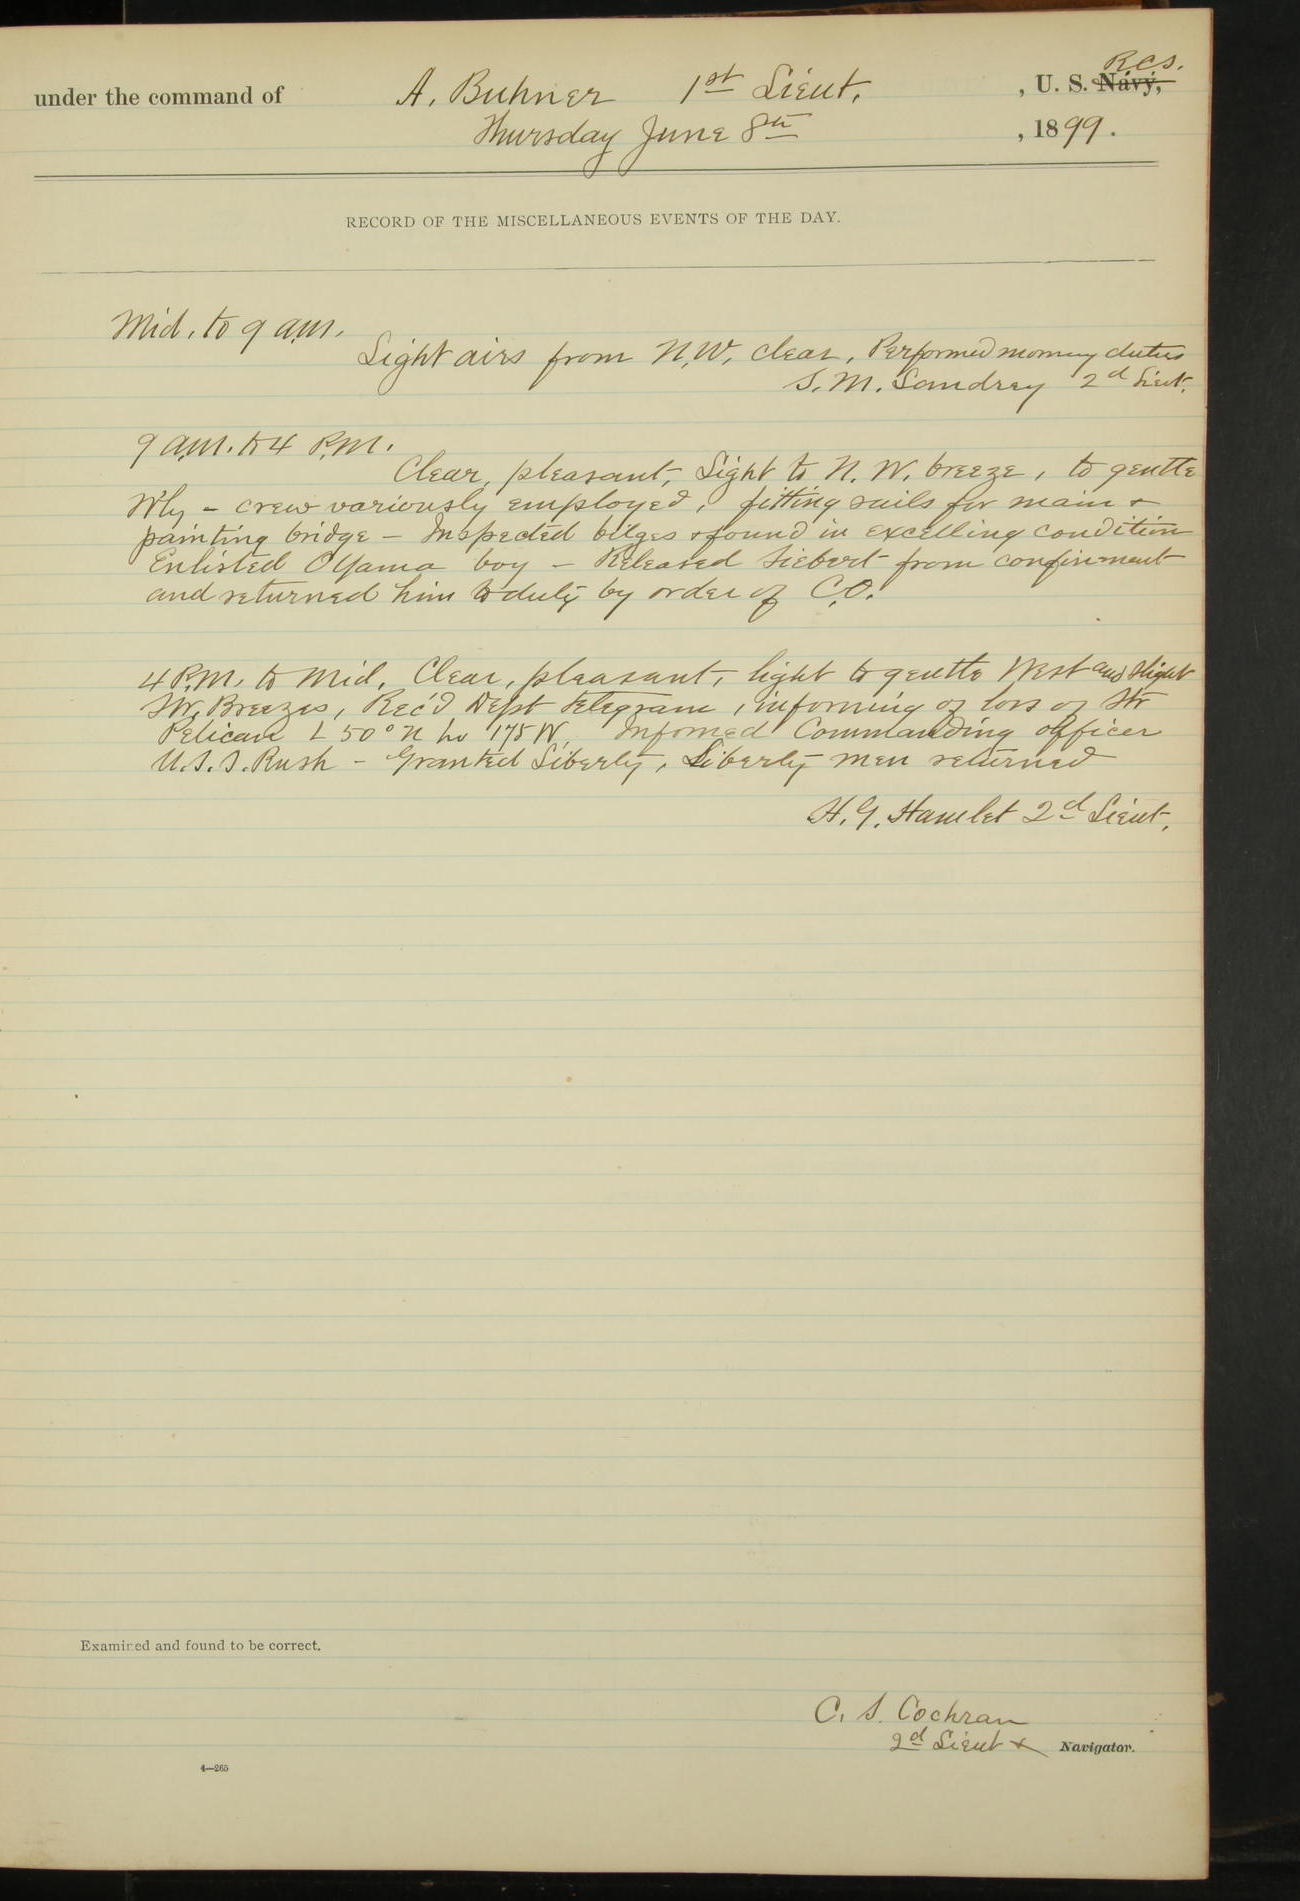 R.C.S.
under the command of A. Buhner 1st Lieut. , U. S. Navy,
Thursday June 8th , 1899.
RECORD OF THE MISCELLANEOUS EVENTS OF THE DAY.
Mid. to 9 a.m.
Light airs from N.W. clear, Performed morning duties
S. M. Landrey 2d Lieut.
9 a.m. to 4 P.M.
Clear, pleasant, Light to N. W. breeze, to gentle
W'ly - crew variously employed, fitting sails for main +
painting bridge - Inspected bilges + found in excelling condition
Enlisted OYama boy - Released Siebert from confinement
and returned him to duty by order of C.O.
4 P.M. to Mid. Clear, pleasant, light to gentle West and Slight
Breezes, Rec'd Dept telegram, informing of loss of Str
Pelican L 50° N Lo 175 W, Informed Commanding officer
U.S.S. Rush - Granted Liberty, Liberty men returned
H. G. Hamlet 2d Lieut.
Examined and found to be correct.
C. S. Cochran
2d Lieut + Navigator.
4—265